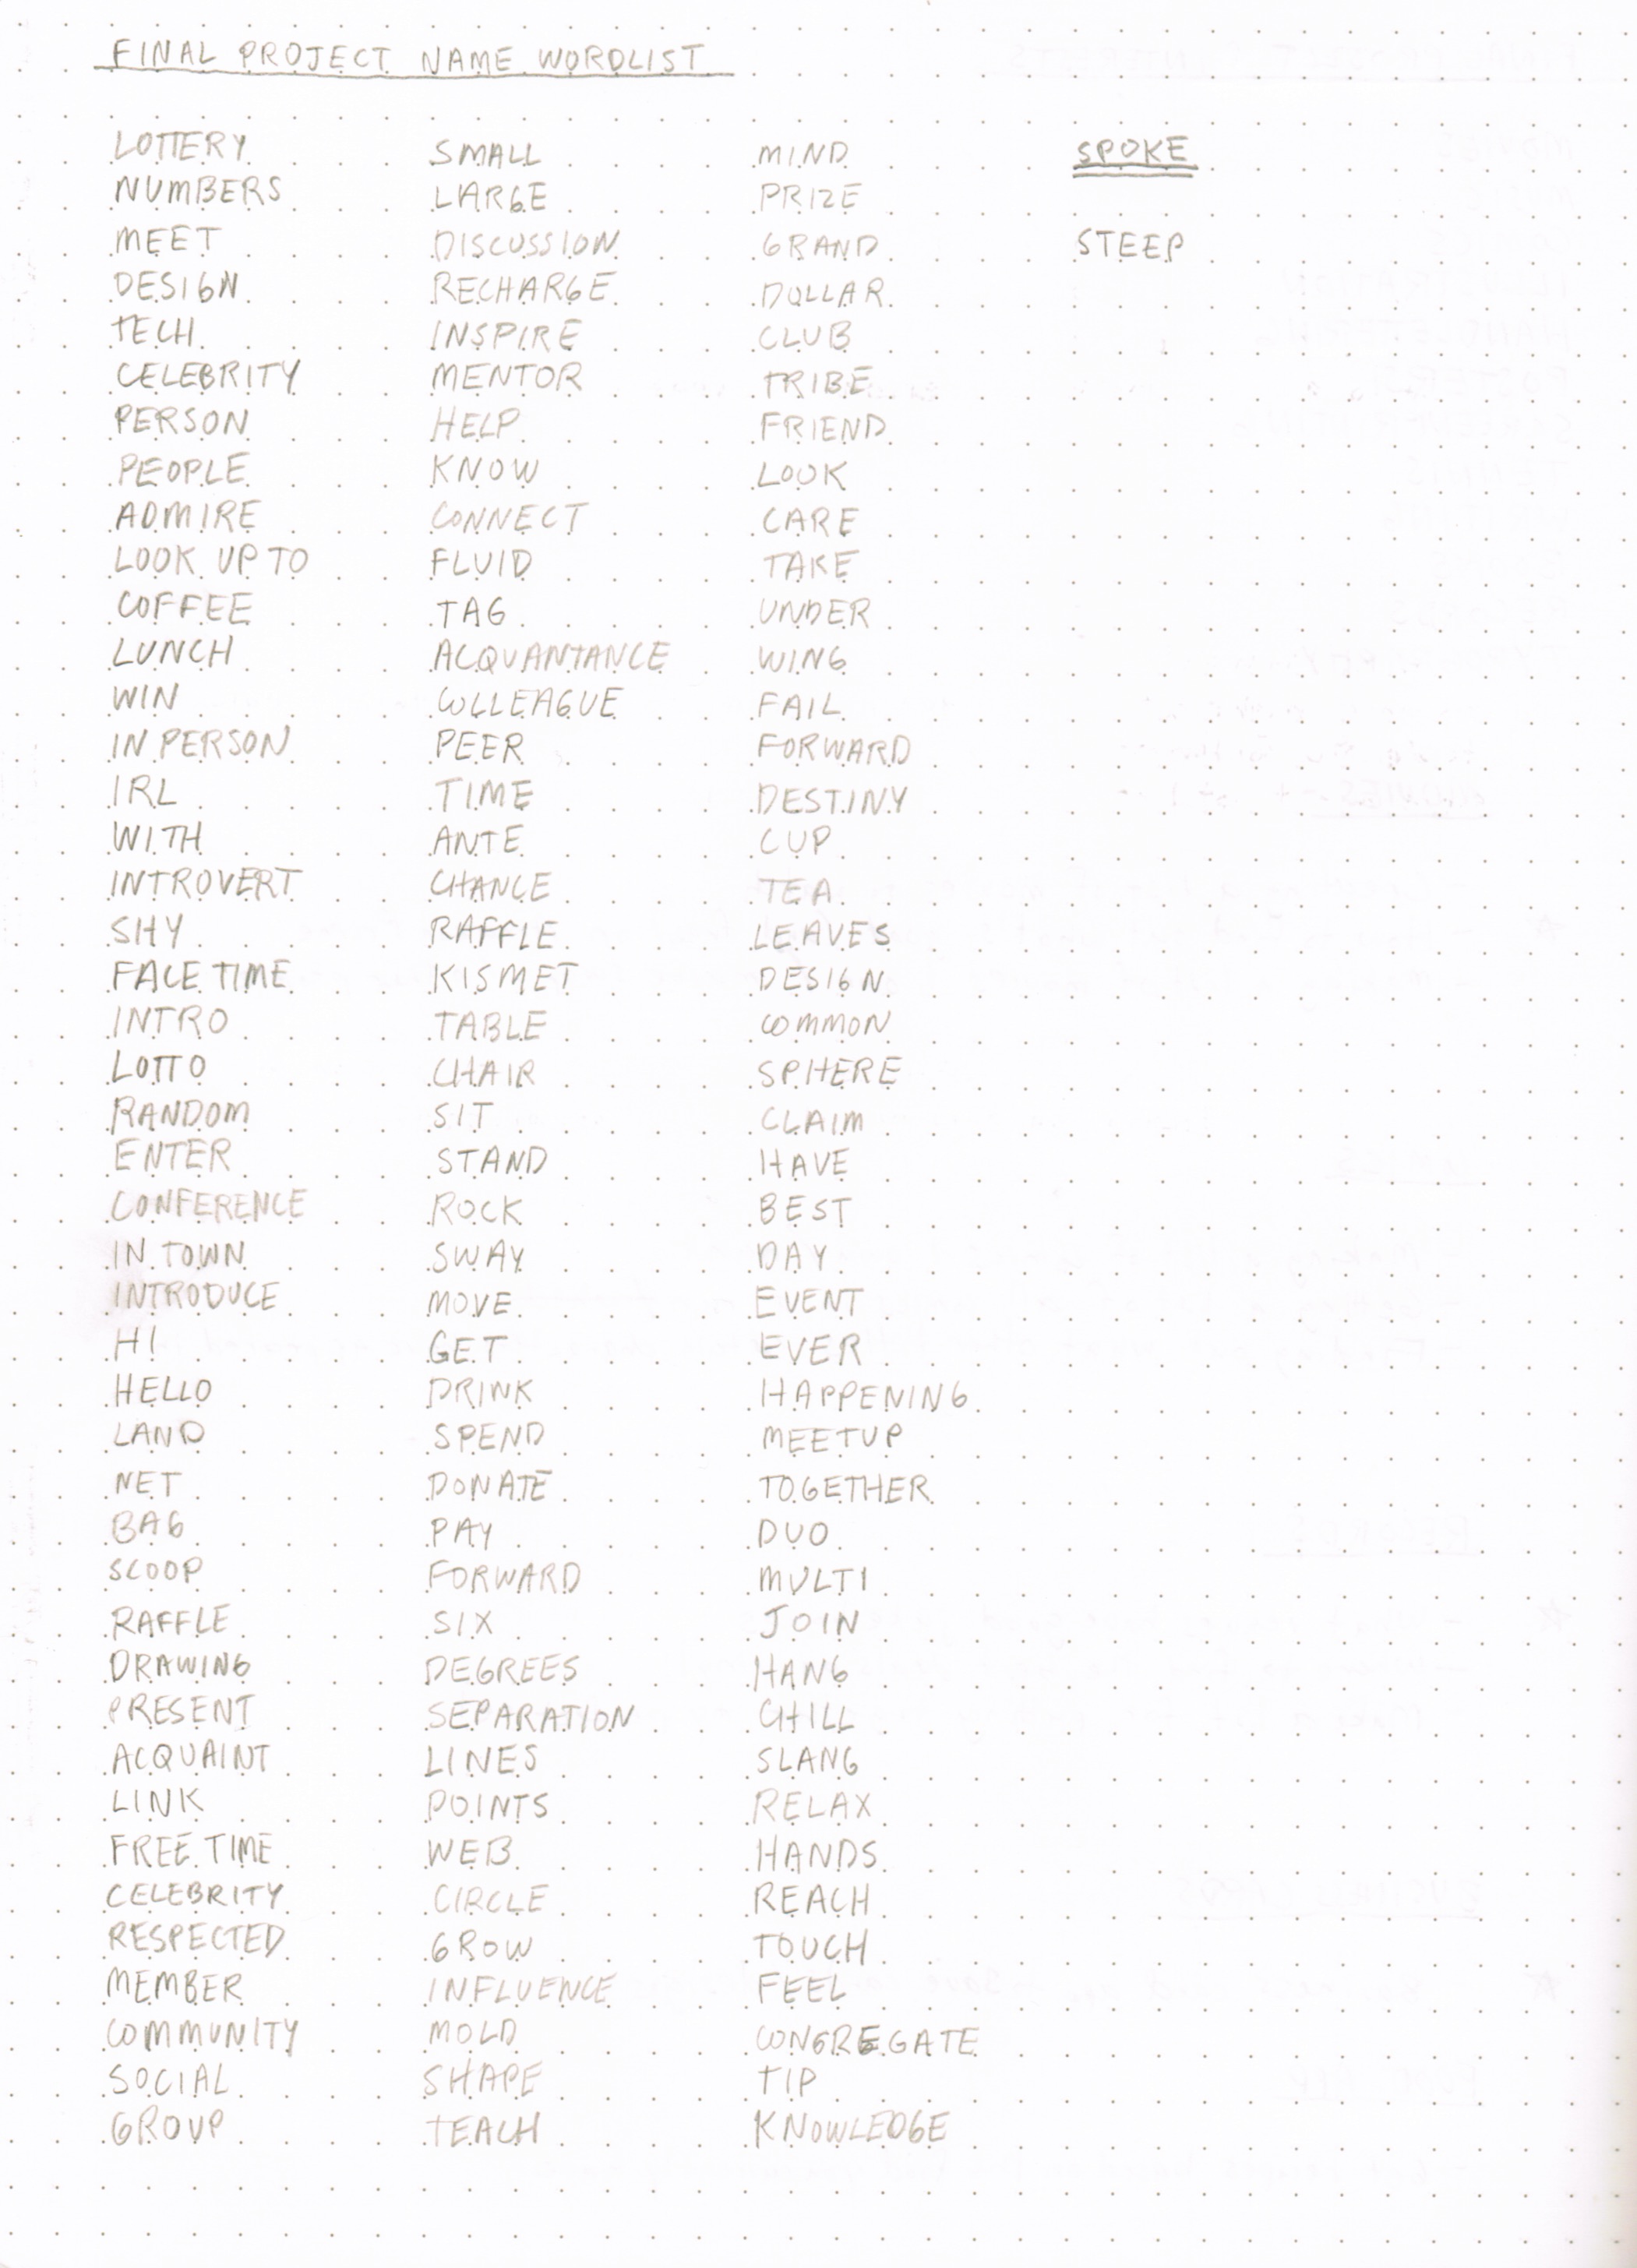 FINAL PROJECT NAME WORDLIST
LOTTERY
NUMBERS
MEET
DESIGN
TECH
CELEBRITY
PERSON
PEOPLE
ADMIRE
LOOK UP TO
COFFEE
LUNCH
WIN
IN PERSON
IRL
WITH
INTROVERT
SHY
FACE TIME
INTRO
LOTTO
RANDOM
ENTER
CONFERENCE
IN TOWN
INTRODUCE
HI
HELLO
LAND
NET
BAG
SCOOP
RAFFLE
DRAWING
PRESENT
ACQUAINT
LINK
FREE TIME
CELEBRITY
RESPECTED
MEMBER
COMMUNITY
SOCIAL
GROUP
SMALL
LARGE
DISCUSSION
RECHARGE
INSPIRE
MENTOR
HELP
KNOW
CONNECT
FLUID
TAG
ACQUANTANCE
COLLEAGUE
PEER
TIME
ANTE
CHANCE
RAFFLE
KISMET
TABLE
CHAIR
SIT
STAND
ROCK
SWAY
MOVE
GET
DRINK
SPEND
DONATE
PAY
FORWARD
SIX
DEGREES
SEPARATION
LINES
POINTS
WEB
CIRCLE
GROW
INFLUENCE
MOLD
SHAPE
TEACH
MIND
PRIZE
GRAND
DOLLAR
CLUB
TRIBE
FRIEND
LOOK
CARE
TAKE
UNDER
WING
FAIL
FORWARD
DESTINY
CUP
TEA
LEAVES
DESIGN
COMMON
SPHERE
CLAIM
HAVE
BEST
DAY
EVENT
EVER
HAPPENING
MEETUP
TOGETHER
DUO
MULTI
JOIN
HANG
CHILL
SLANG
RELAX
HANDS
REACH
TOUCH
FEEL
CONGREGATE
TIP
KNOWLEDGE
SPOKE
STEEP